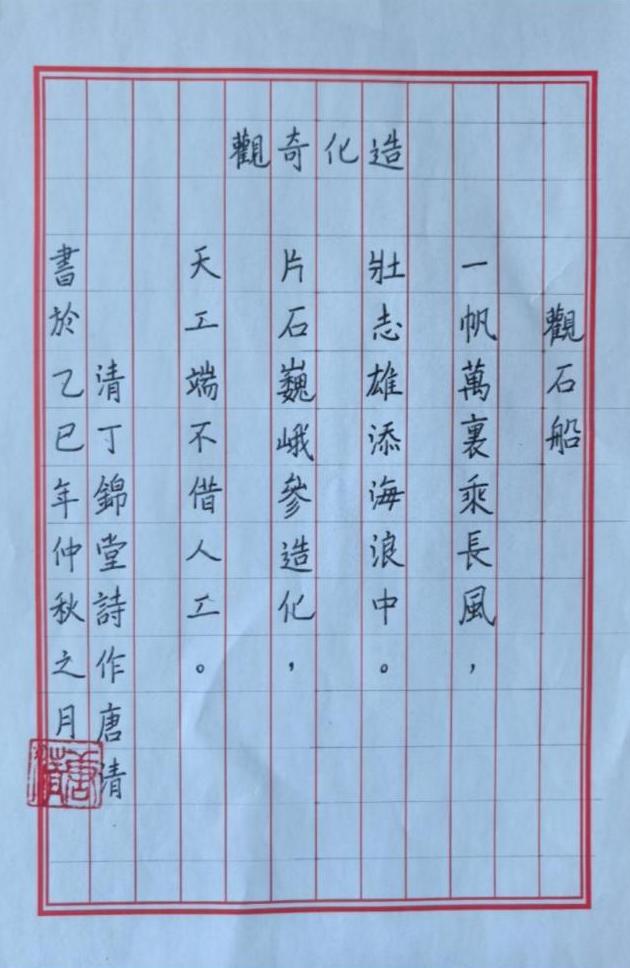 造化奇觀
觀石船
一帆萬裏乘長風，
壯志雄添海浪中。
片石巍峨參造化，
天工端不借人工。
清丁錦堂詩作唐清
書於乙巳年仲秋之月
唐清